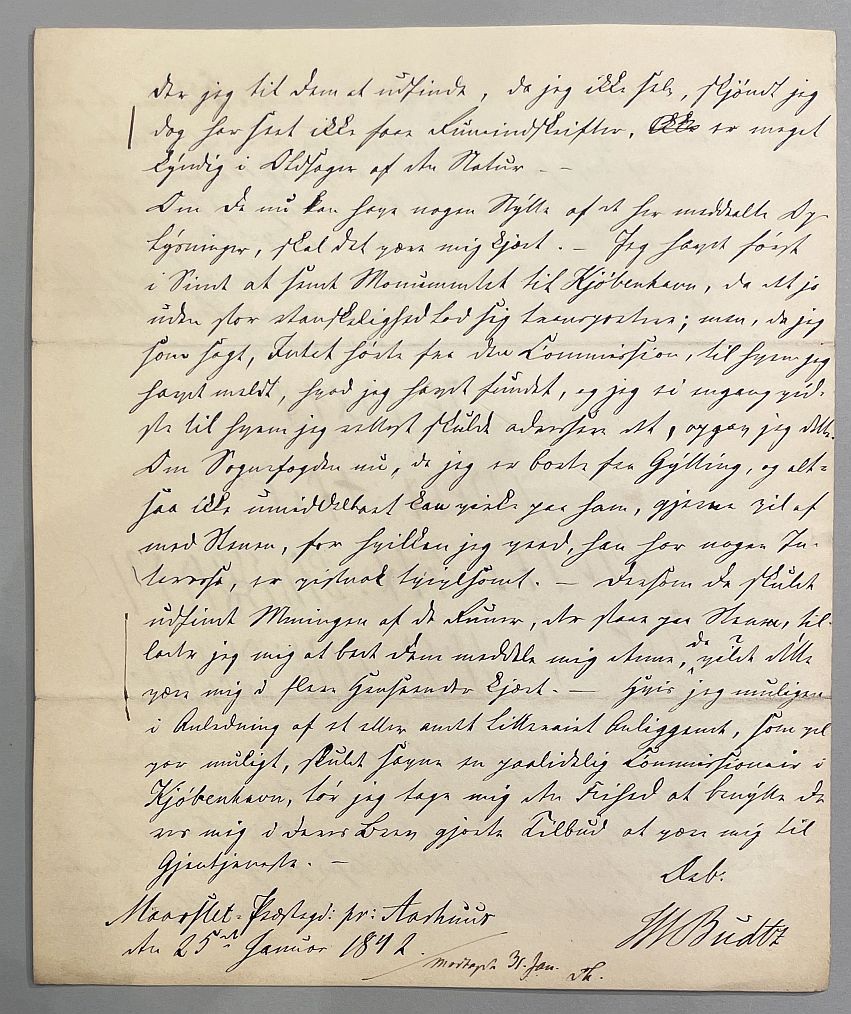 der jeg til Dem at udfinde, da jeg ikke selv, skjøndt jeg
dog har seet ikke faae Runeindskrifter, er meget
kyndig i Oldsager af den Natur. –
Om De nu kan have nogen Nytte af de her meddeelte Op-
lysninger, skal det være mig kjært. – Jeg havde først
i Sinde at sende Monumentet til Kjöbenhavn, da det jo
uden stor Vanskelighed lod sig transportere; men, da jeg
som sagt, Intet hørte fra den Commission, til hvem jeg
havde meldt, hvad jeg havde fundet, og jeg ei engang vid-
ste til hvem jeg rettest skulde adressere det, opgav jeg dette.
Om Sognefogden nu, da jeg er borte fra Gylling, og alt-
saa ikke umiddelbart kan virke paa ham, gjerne vil af
med Stenen, for hvilken jeg veed, han har nogen In-
teresse, er vistnok tvivlsomt. – Dersom De skulde
udfinde Meningen af de Runer, der staae paa Stenen, til-
lader jeg mig at bede Dem meddele mig denne, da vilde dette
være mig i flere Henseender kjært. – Hvis jeg muligen
i Anledning af et eller andet litterairt Anliggende, som vel
var muligt, skulde savne en paalidelig Commissionair i
Kjöbenhavn, tør jeg tage mig den Frihed at benytte De
res mig i Deres Brev gjorte Tilbud at være mig til
Gjentjeneste. –
Deb.
Maarslet-Præstegd: pr: Aarhuus
den 25de Januar 1842.
Budtz
modtaget 31. Jan. Th.